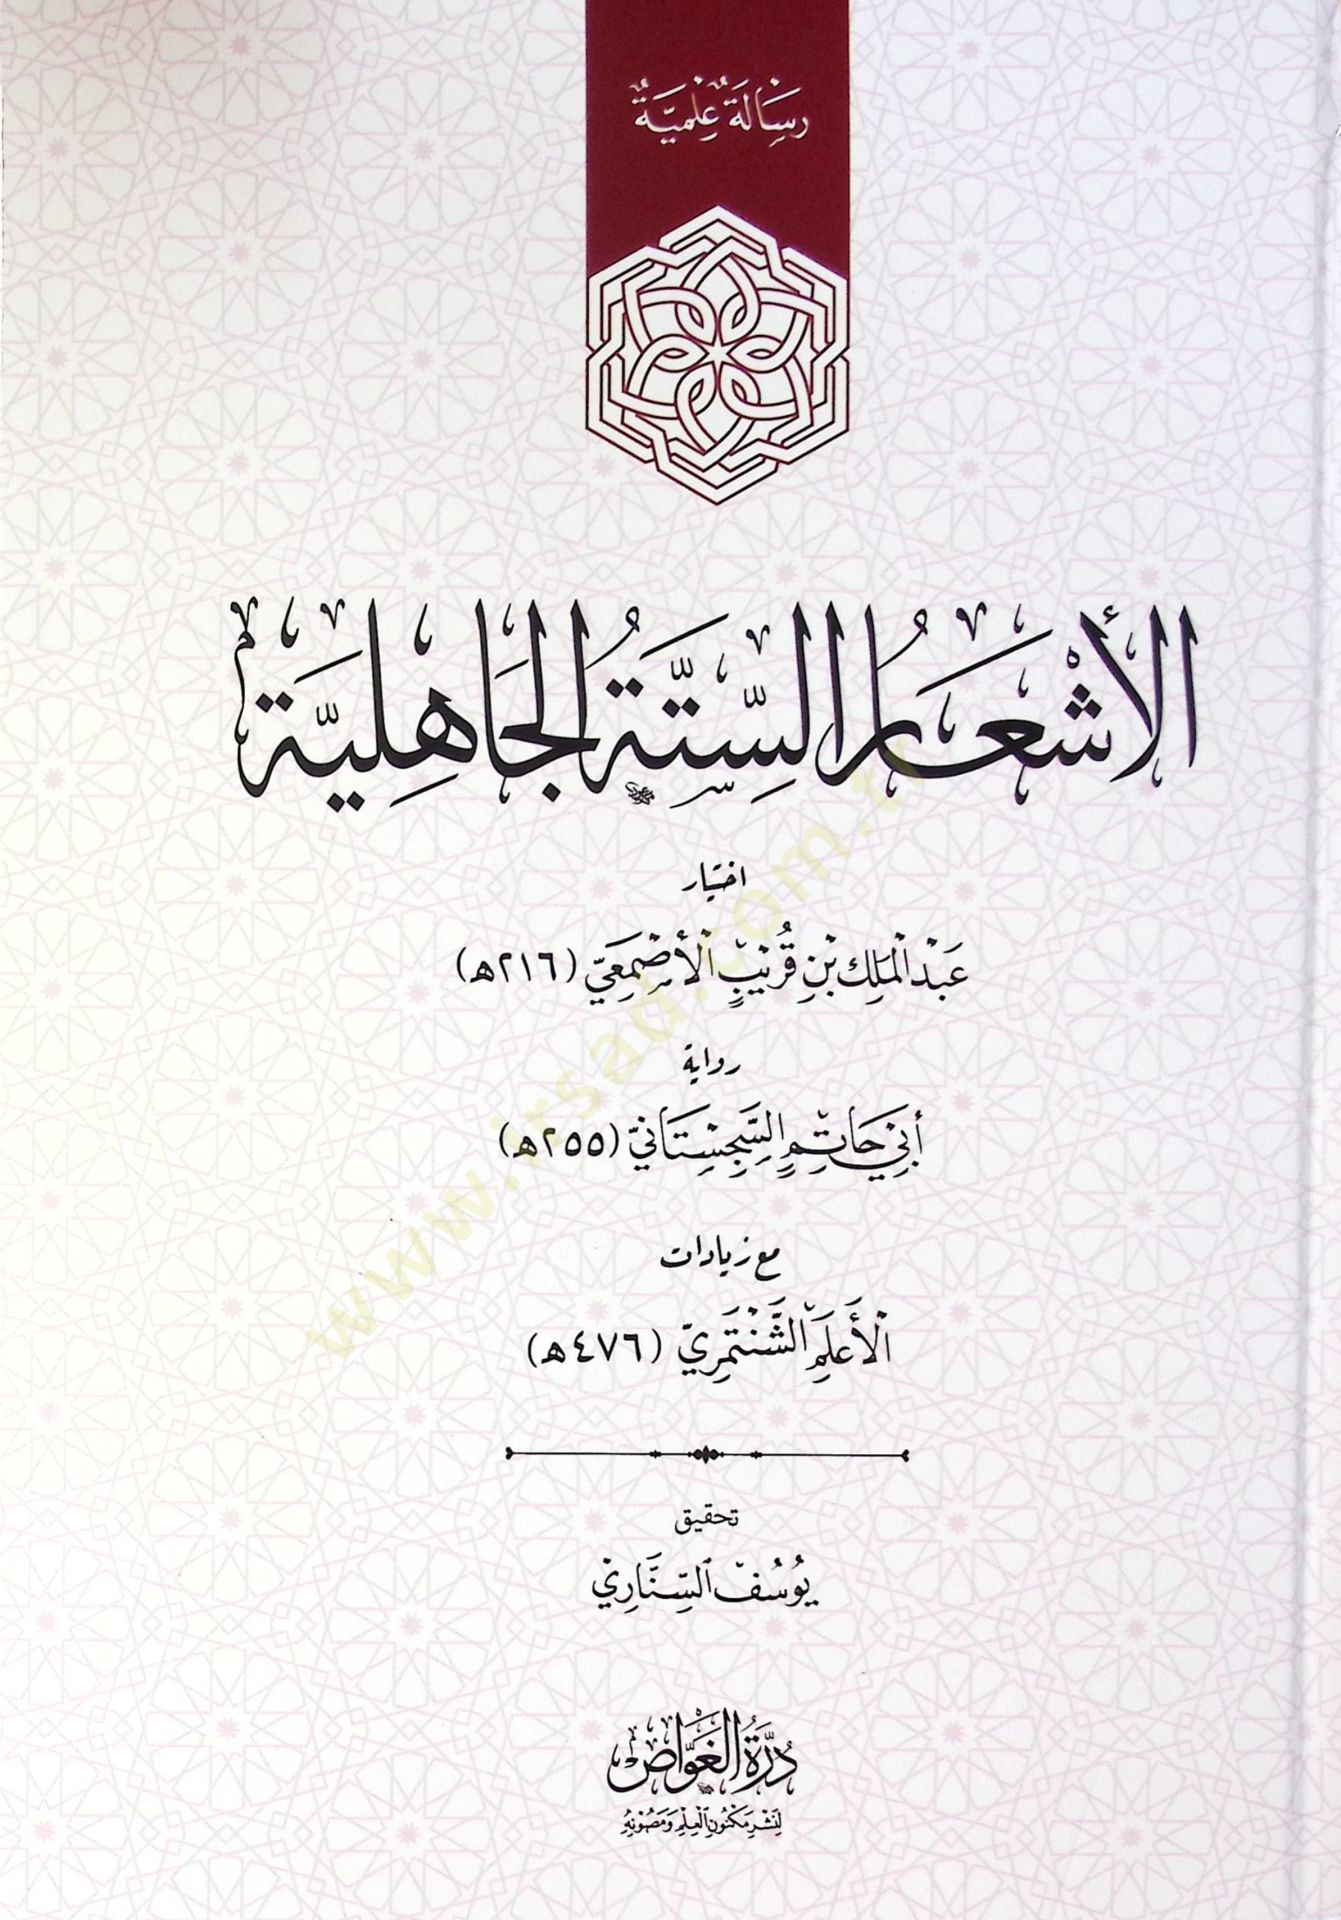 رِسَالَةٌ عِلْمِيَّةٌ
الأَشْعَارُ السِّتَّةُ الجَاهِلِيَّة
اختيار
عَبْدِ المَلِكِ بْنِ قُرَيْبٍ الأَصْمَعِيّ (٢١٦هـ)
رواية
أَبِي حَاتِمٍ السِّجِسْتَانِيّ (٢٥٥هـ)
مع زيادات
الأَعْلَمِ الشَّنْتَمَرِيّ (٤٧٦هـ)
تحقيق
يُوسُف السِّنَّارِيْ
دُرَّةُ الغَوَّاصِ
لِنَشْرِ مَكْنُونِ العِلْمِ وَمَصُونِهِ
www.irsad.com.tr